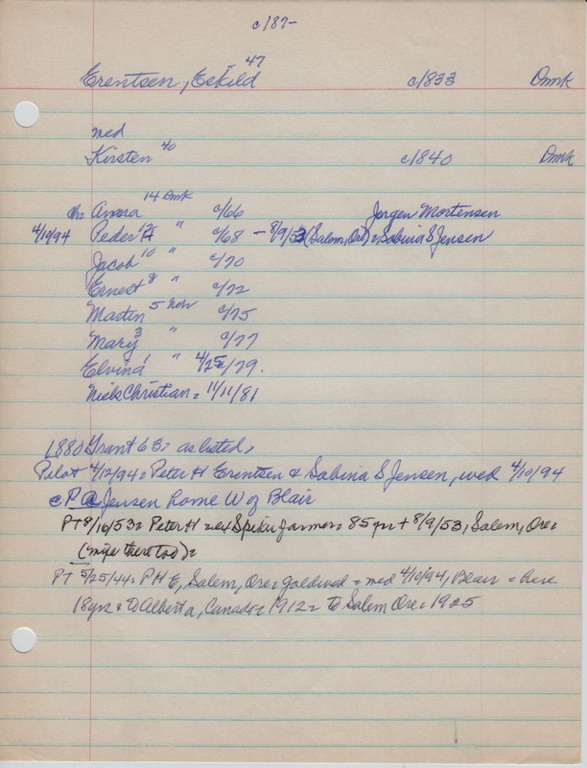 c/187-
Erentsen, Eskild 47 c/833 Dmk
med
Kirsten 40 c/1840 Dmk
ch: Anna 14 Dmk c/66 Jorgen Mortensen
4/10/94 Peder H 12 " c/68 - 8/9/53 (Salem, Ore) = Sabina S Jensen
Jacob 10 " c/70
Ernest 8 " c/72
Martin 5 Neb c/75
Mary 3 " c/77
Elvina 1 " 4/25/79.
Niels Christian = 11/11/81
1880 Grant 63 = as listed =
Pilot 4/12/94 = Peter H Erentsen & Sabina S Jensen, wed 4/10/94
@ Jensen home W of Blair
PT 8/10/53 = Peter H = ex Spiker farmer = 85 yrs + 8/9/53, Salem, Ore =
(wife there too) =
PT 5/25/44 = PH E, Salem, Ore = goldwed = med 4/10/94, Blair = here
18 yrs & to Alberta, Canada = 1912 = to Salem Ore = 1925